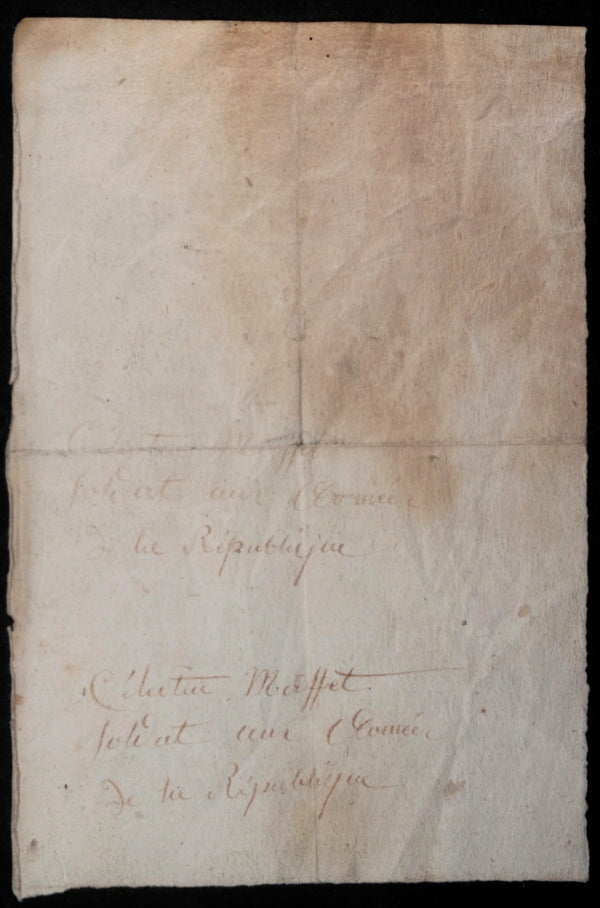 Maffet
soldat aux Armées
de la République
Célestin Maffet
soldat aux Armées
de la République